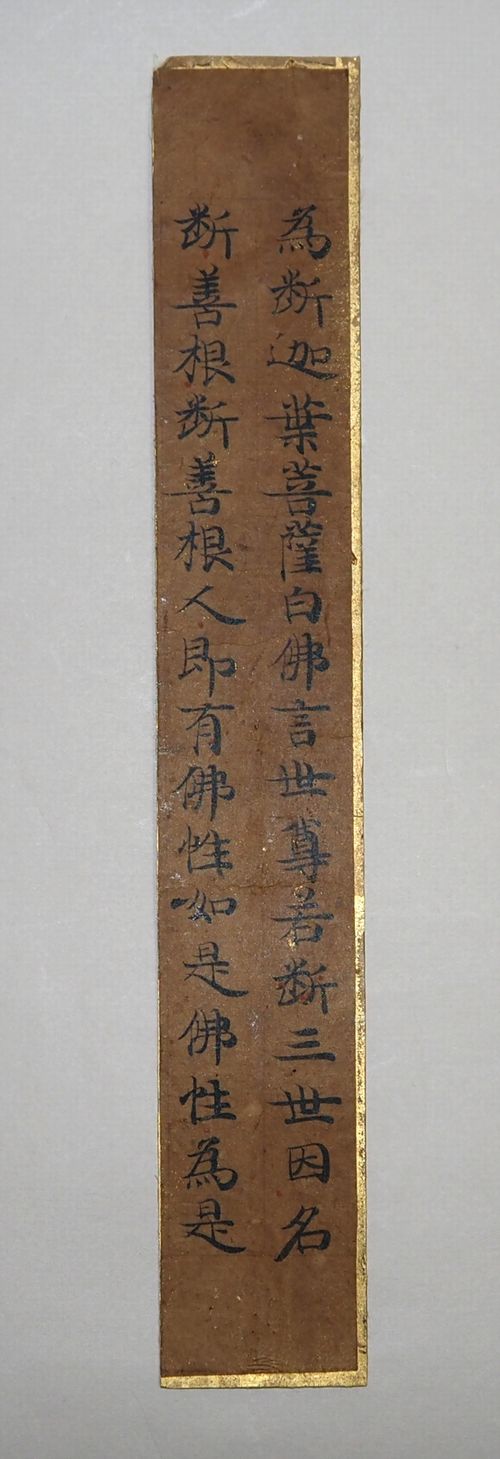 為断迦葉菩薩白佛言世尊若断三世因名
断善根断善根人即有佛性如是佛性為是